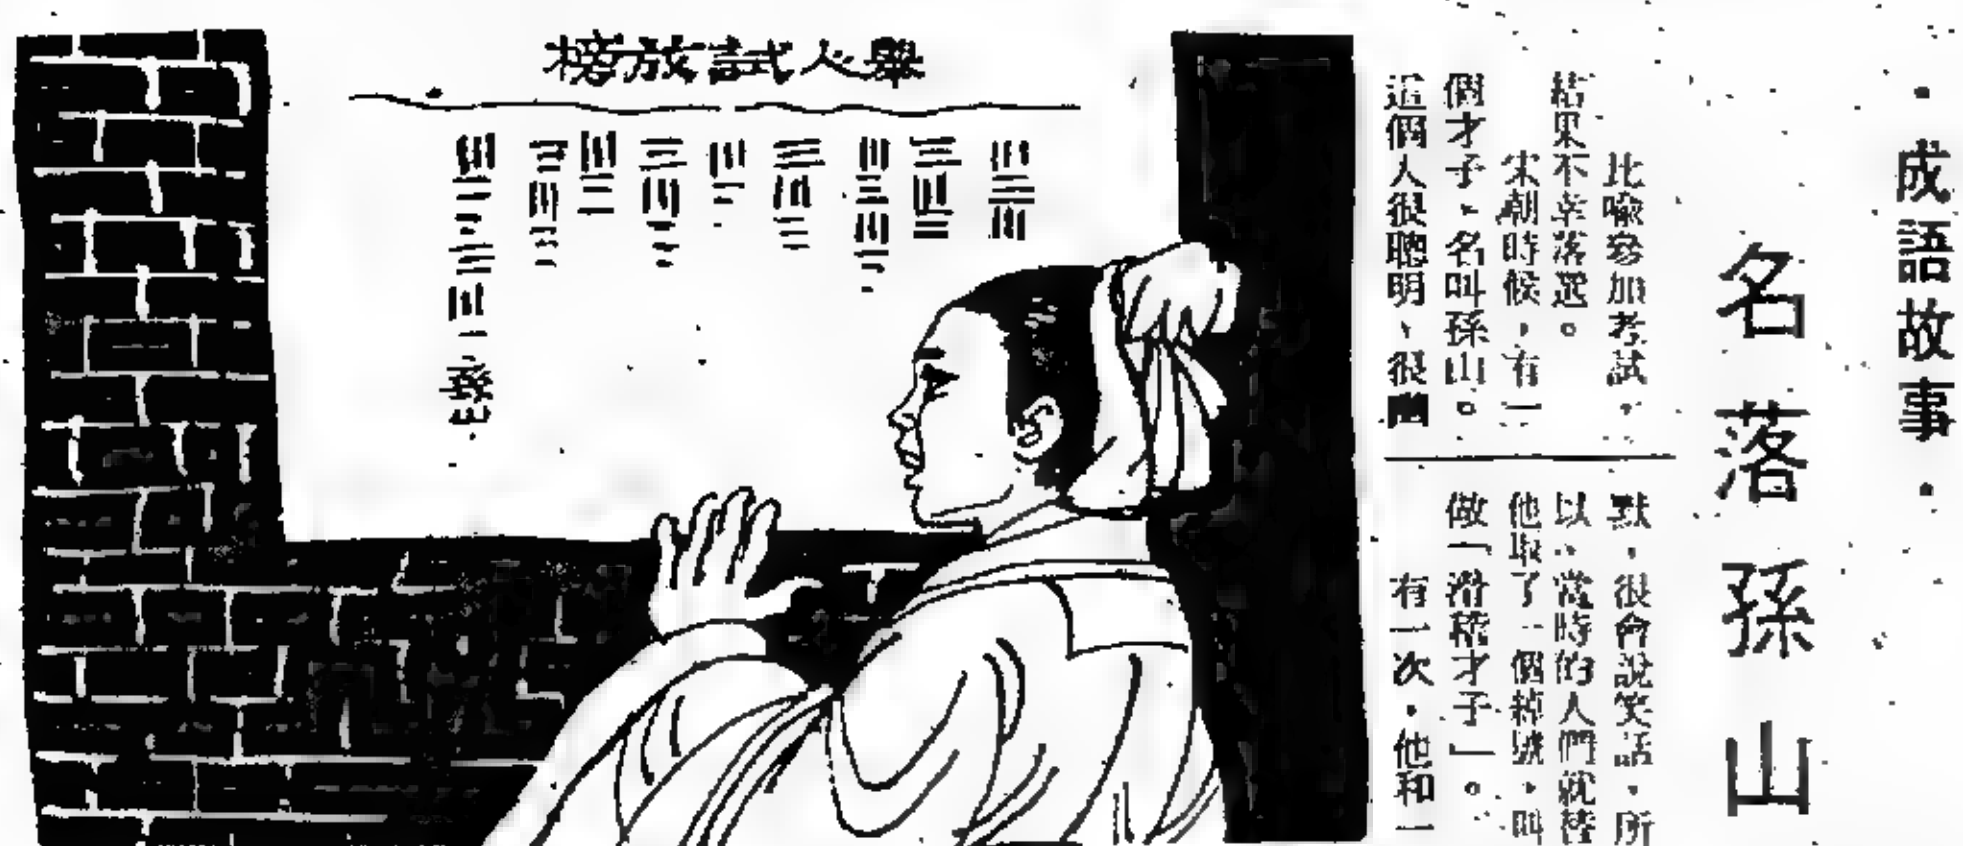 ·成語故事·
名落孫山
比喻參加考試，
結果不幸落選。
宋朝時候，有一
個才子，名叫孫山。
這個人很聰明、很幽
默，很會說笑話，所
以，當時的人們就替
他取了一個綽號，叫
做「滑稽才子」。
有一次，他和一
舉人試放榜